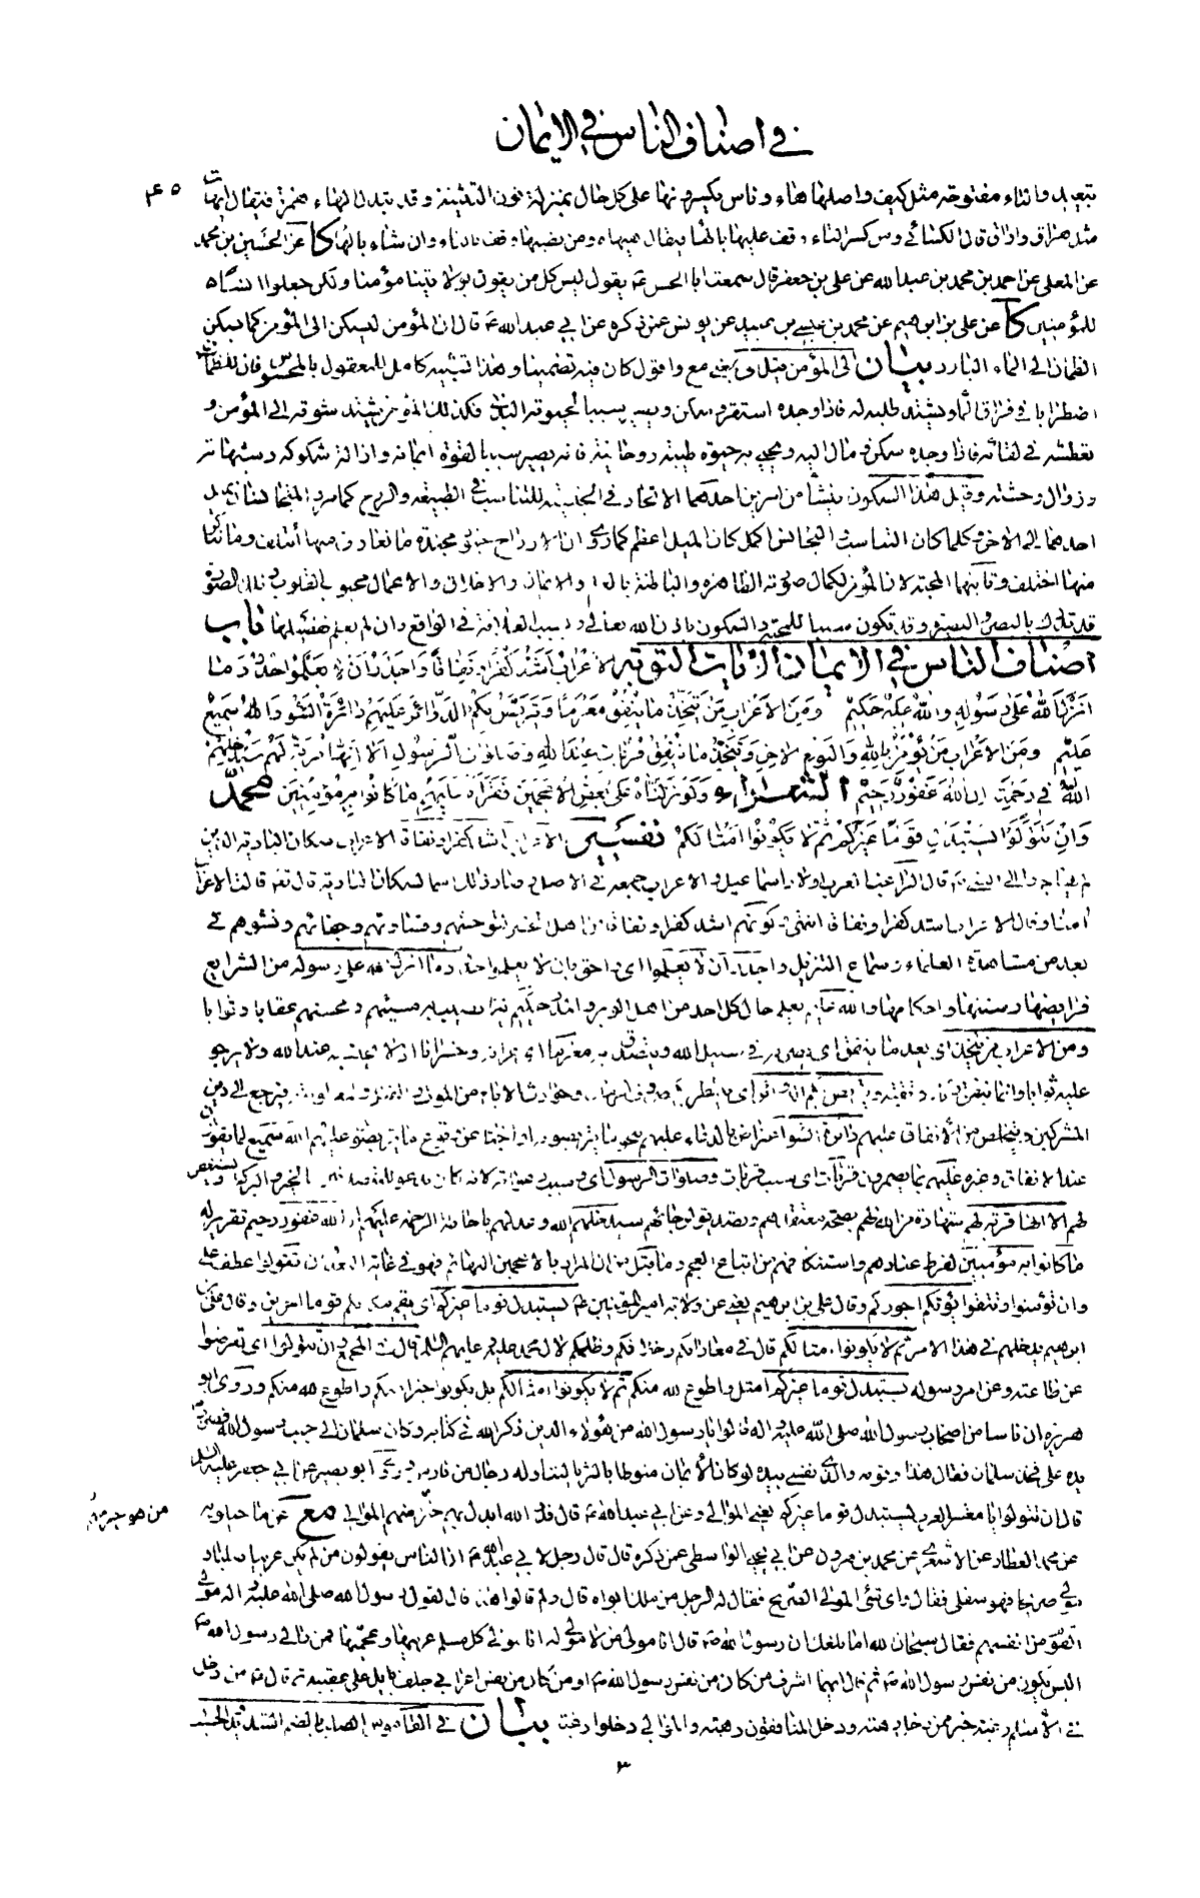 في اصناف الناس في الايمان
۴۵
تبعيد والتاء مفتوحة مثل كيف واصلها هاء وناس يكسرونها على كل حال بمنزلة نون التثنية وقد تبدل الهاء همزة فيقال ايهات
مثل هراق واراق قال الكسائي ومن كسر التاء وقف عليها بالهاء فيقال هيهاه ومن نصبها وقف بالتاء وان شاء بالهاء كا عن الحسين بن محمد
عن المعلى عن احمد بن محمد بن عبد الله عن علي بن جعفر قال سمعت ابا الحسن ع يقول ليس كل من يقول بولايتنا مؤمنا ولكن جعلوا انسا
للمؤمنين كا عن علي بن ابرهيم عن محمد بن عيسى بن عبيد عن يونس عمن ذكره عن ابي عبد الله ع قال ان المؤمن ليسكن الى المؤمن كما يسكن
الظمان الى الماء البارد بيان الى المؤمن قيل الى بمعنى مع واقول كان فيه تضمينا وهذا تشبيه كامل للمعقول بالمحسوس فان للظمان
اضطرابا في فراق الماء ويشتد طلبه له فاذا وجده استقر وسكن ويصير سببا لحيوته البدني فكذلك المؤمن يشتد شوقه الى المؤمن و
تعطشه في لقائه فاذا وجده سكن ومال اليه ويحيى به حيوة طيبة روحانية فانه يصير سببا لقوة ايمانه وازالة شكوكه وشبهاته
وزوال وحشته وقيل هذا السكون ينشأ من امرين احدهما الاتحاد في الجنسية للتناسب في الطبيعة والروح كما مر المتجانسان يميل
احدهما الى الاخر وكلما كان التناسب والتجانس اكمل كان الميل اعظم كما روي ان الارواح جنود مجندة ما تعارف منها ائتلف وما تناكر
منها اختلف وثانيهما المحبة لان المؤمن لكمال صورته الظاهرة والباطنة بالعلم والايمان والاخلاق والاعمال محبوب القلوب وتلك الصورة
قد تدرك بالبصر والبصيرة وقد تكون سببا للمحبة والسكون باذن الله تعالى وبسبب العلاقة في الواقع وان لم يعلم تفصيلها باب
اصناف الناس في الايمان الايات التوبة الاعراب اشد كفرا ونفاقا واجدر ان لا يعلموا حدود ما
انزل الله على رسوله والله عليم حكيم ومن الاعراب من يتخذ ما ينفق مغرما ويتربص بكم الدوائر عليهم دائرة السوء والله سميع
عليم ومن الاعراب من يؤمن بالله واليوم الاخر ويتخذ ما ينفق قربات عند الله وصلوات الرسول الا انها قربة لهم سيدخلهم
الله في رحمته ان الله غفور رحيم الشعراء ولو نزلناه على بعض الاعجمين فقرأه عليهم ما كانوا به مؤمنين محمد
وان تتولوا يستبدل قوما غيركم ثم لا يكونوا امثالكم تفسير الاعراب اشد كفرا ونفاقا الاعراب سكان البادية الذين
لم يهاجروا الى النبي ص قال الراغب العرب ولد اسماعيل والاعراب جمعه في الاصل وصار ذلك اسما لسكان البادية قال تعالى قالت الاعراب
امنا وقال الاعراب اشد كفرا ونفاقا انتهى كونهم اشد كفرا ونفاقا من اهل الحضر لتوحشهم وقساوتهم وجفائهم ونشوهم في
بعد من مشاهدة العلماء وسماع التنزيل واجدر ان لا يعلموا اي احق بان لا يعلموا حدود ما انزل الله على رسوله من الشرايع
فرايضها وسننها واحكامها والله عليم يعلم حال كل احد من اهل الوبر والمدر حكيم فيما يصيب به مسيئهم ومحسنهم عقابا وثوابا
ومن الاعراب من يتخذ اي يعد ما ينفق اي يصرفه في سبيل الله ويتصدق به مغرما اي غرامة وخسرانا اذ لا يحتسبه عند الله ولا يرجو
عليه ثوابا وانما ينفق رياء وتقية ويتربص بكم الدوائر اي ينتظر بكم صروف الزمان وحوادث الايام من الموت والقتل والمغلوبية فيرجع الى دين
المشركين ويتخلص من الانفاق عليهم دائرة السوء اعتراض بالدعاء عليهم بنحو ما يتربصونه او اخبار عن وقوع ما يتربصون عليهم والله سميع لما يقولون
عند الانفاق وغيره عليم بما يضمرون قربات اي سبب قربات وصلوات الرسول اي وسبب صلواته لانه كان يدعو للمتصدقين بالخير والبركة ويستغفر
لهم الا انها قربة لهم شهادة من الله لهم بصحة معتقدهم وتصديق لرجائهم سيدخلهم الله وعد لهم باحاطة الرحمة عليهم ان الله غفور رحيم تقرير له
ما كانوا به مؤمنين لفرط عنادهم واستنكافهم من اتباع العجم وما قيل من ان المراد بالاعجمين البهائم فهو في غاية البعد ان تتولوا عطف على
وان تؤمنوا وتتقوا يؤتكم اجوركم وقال علي بن ابرهيم يعني عن ولاية امير المؤمنين ع يستبدل قوما غيركم اي يقم مكانكم قوما اخرين وقال علي بن
ابرهيم يدخلهم في هذا الامر ثم لا يكونوا امثالكم قال في معاداتكم وخلافكم وظلمكم لال محمد صلى الله عليهم السلام وقال في المجمع وان تتولوا اي تعرضوا
عن طاعته وعن امر رسوله يستبدل قوما غيركم امثل واطوع لله منكم ثم لا يكونوا امثالكم بل يكونوا خيرا منكم واطوع لله منكم وروى ابو
هريرة ان ناسا من اصحاب رسول الله صلى الله عليه واله قالوا يا رسول الله من هؤلاء الذين ذكر الله في كتابه وكان سلمان الى جنب رسول الله فضرب
يده على فخذ سلمان فقال هذا وقومه والذي نفسي بيده لو كان الايمان منوطا بالثريا لتناوله رجال من فارس وروى ابو بصير عن ابي جعفر عليه السلم
قال ان تتولوا يا معشر العرب يستبدل قوما غيركم يعني الموالي وعن ابي عبد الله ع قال قد والله ابدل بهم خيرا منهم الموالي مع عن ماجيلويه
من هو خير
عن محمد العطار عن الاشعري عن محمد بن هرون عن ابي يحيى الواسطي عمن ذكره قال قال رجل لابي عبد الله ع ان الناس يقولون من لم يكن عربيا صلبا و
مولى صريحا فهو سفلي فقال واي شئ المولى الصريح فقال له الرجل من ملك ابواه قال ولم قالوا هذا قال لقول رسول الله صلى الله عليه واله مولى
القوم من انفسهم فقال سبحان الله اما بلغك ان رسول الله ص قال انا مولى من لا مولى له انا مولى كل مسلم عربيها وعجميها فمن والى رسول الله ص
اليس يكون من نفس رسول الله ص ثم قال ايهما اشرف من كان من نفس رسول الله ص او من كان من نفس اعرابي جلف بايل على عقبيه ثم قال ع من دخل
في الاسلام رغبة خير ممن دخل رهبة ودخل المنافقون رهبة والموالي دخلوا رغبة بيان في القاموس الصلب بالضم الشديد الحسب
۳